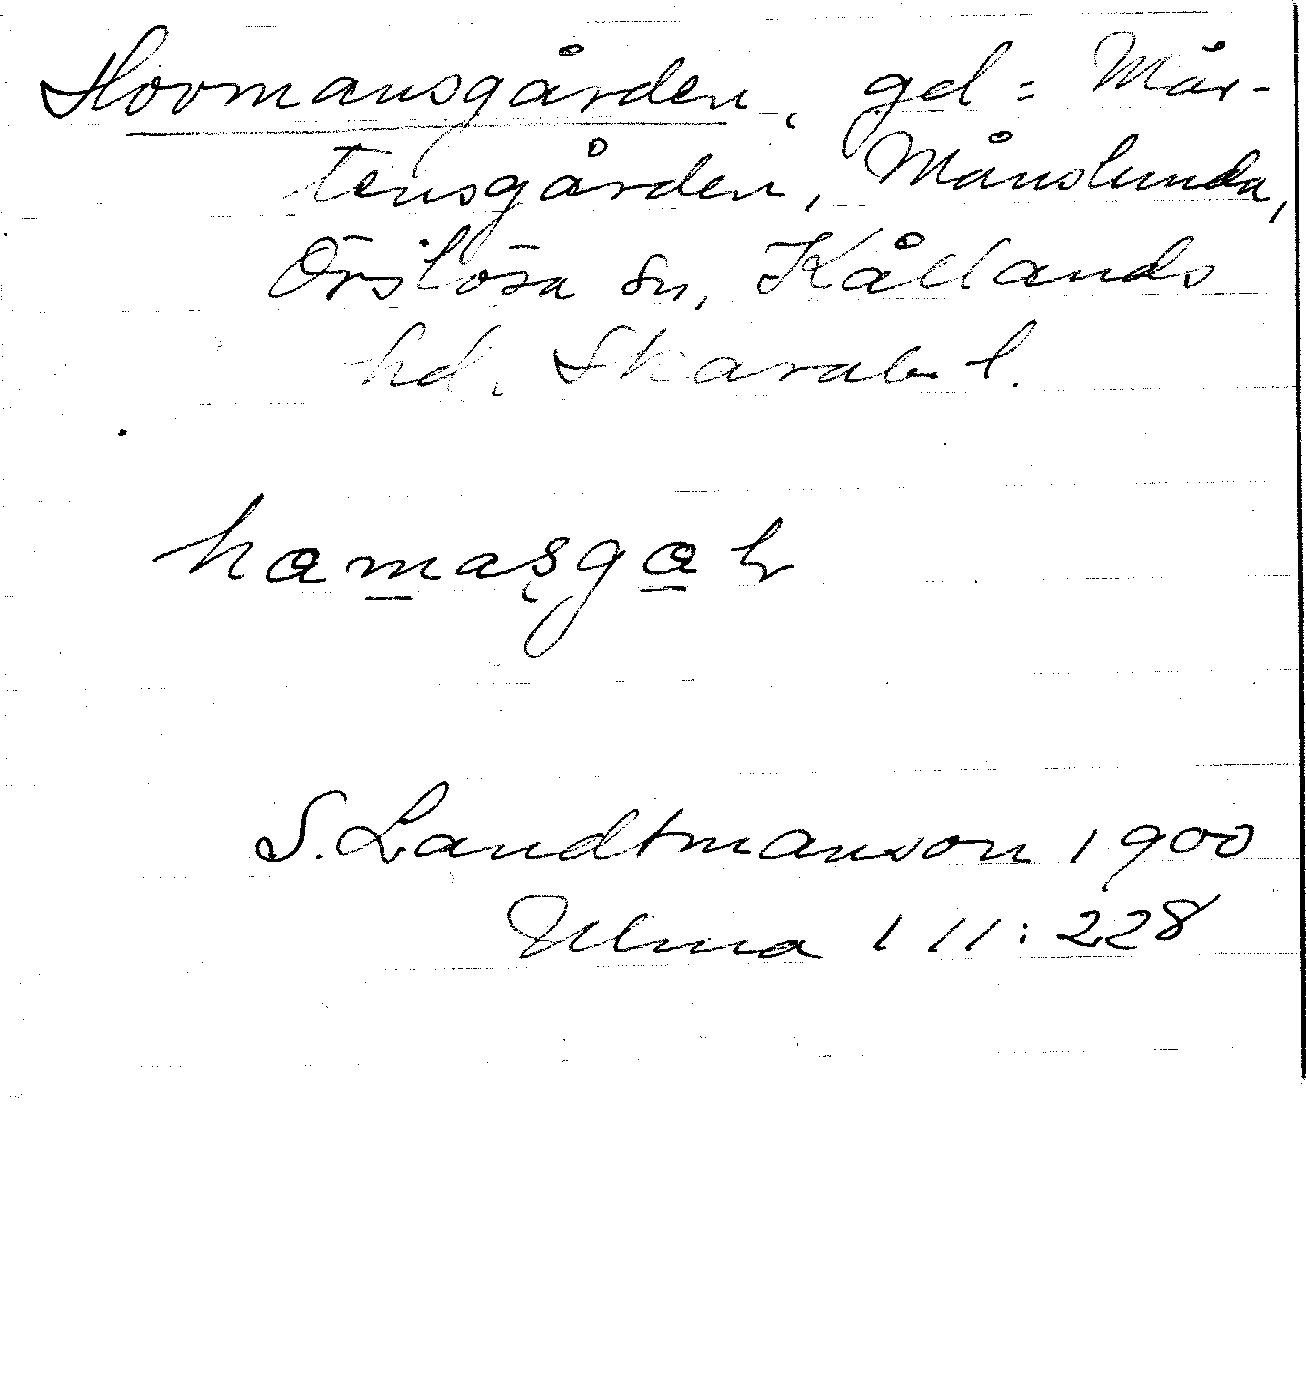 Hovmansgården, gd = Mår-
tensgården, Månslunda,
Örslösa sn, Kållands
hd. Skarab. l.
hamasgaḷ
S. Landtmanson 1900
Ulma 111:228